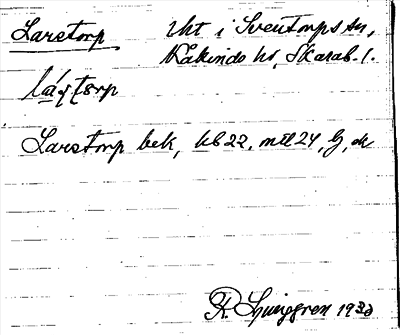 Larstorp Uht i Sventorps sn,
Kåkinds hd, Skarab. l.
Larstorp bek, kb 22, mtl 24, G, dr
R. Ljunggren 1930